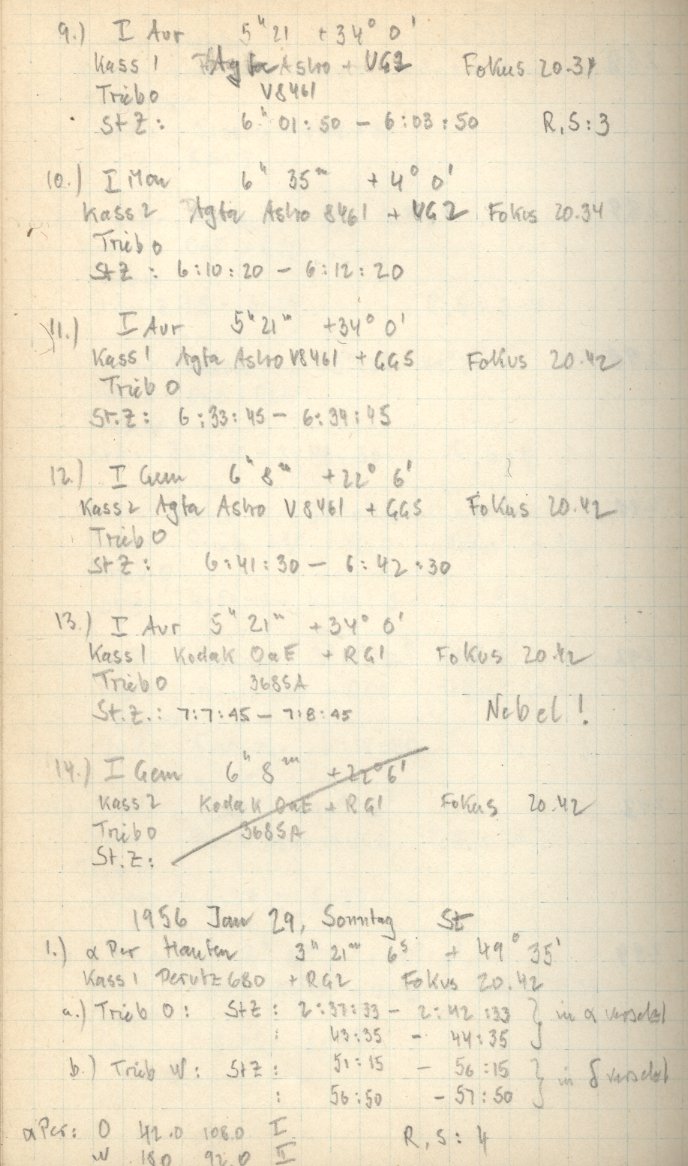 9.) I Aur 5h 21 +34° 0'
Kass 1 Agfa Astro + UG2 Fokus 20.34
Trieb O V8461
StZ: 6h 01:50 - 6:03:50 R, S:3
10.) I Mon 6h 35m +4° 0'
Kass 2 Agfa Astro 8461 + UG2 Fokus 20.34
Trieb O
StZ: 6:10:20 - 6:12:20
11.) I Aur 5h 21m +34° 0'
Kass 1 Agfa Astro V8461 + GG5 Fokus 20.42
Trieb O
St.Z: 6:33:45 - 6:34:45
12.) I Gem 6h 8m +22° 6'
Kass 2 Agfa Astro V8461 + GG5 Fokus 20.42
Trieb O
StZ: 6:41:30 - 6:42:30
13.) I Aur 5h 21m +34° 0'
Kass 1 Kodak OaE + RG1 Fokus 20.42
Trieb O 3685A
St.Z.: 7:7:45 - 7:8:45 Nebel!
14.) I Gem 6h 8m +22° 6'
Kass 2 Kodak OaE + RG1 Fokus 20.42
Trieb O 3685A
St.Z:
1956 Jan 29, Sonntag St
1.) α Per Haufen 3h 21m 6s + 49° 35'
Kass 1 Perutz 680 + RG2 Fokus 20.42
a.) Trieb O: StZ: 2:37:33 - 2:42:33 } in α versetzt
: 43:35 - 44:35
b.) Trieb W: StZ: 51:15 - 56:15 } in δ versetzt
: 56:50 - 57:50
α Per: O 42.0 108.0 I R, S: 4
W 18.0 92.0 II